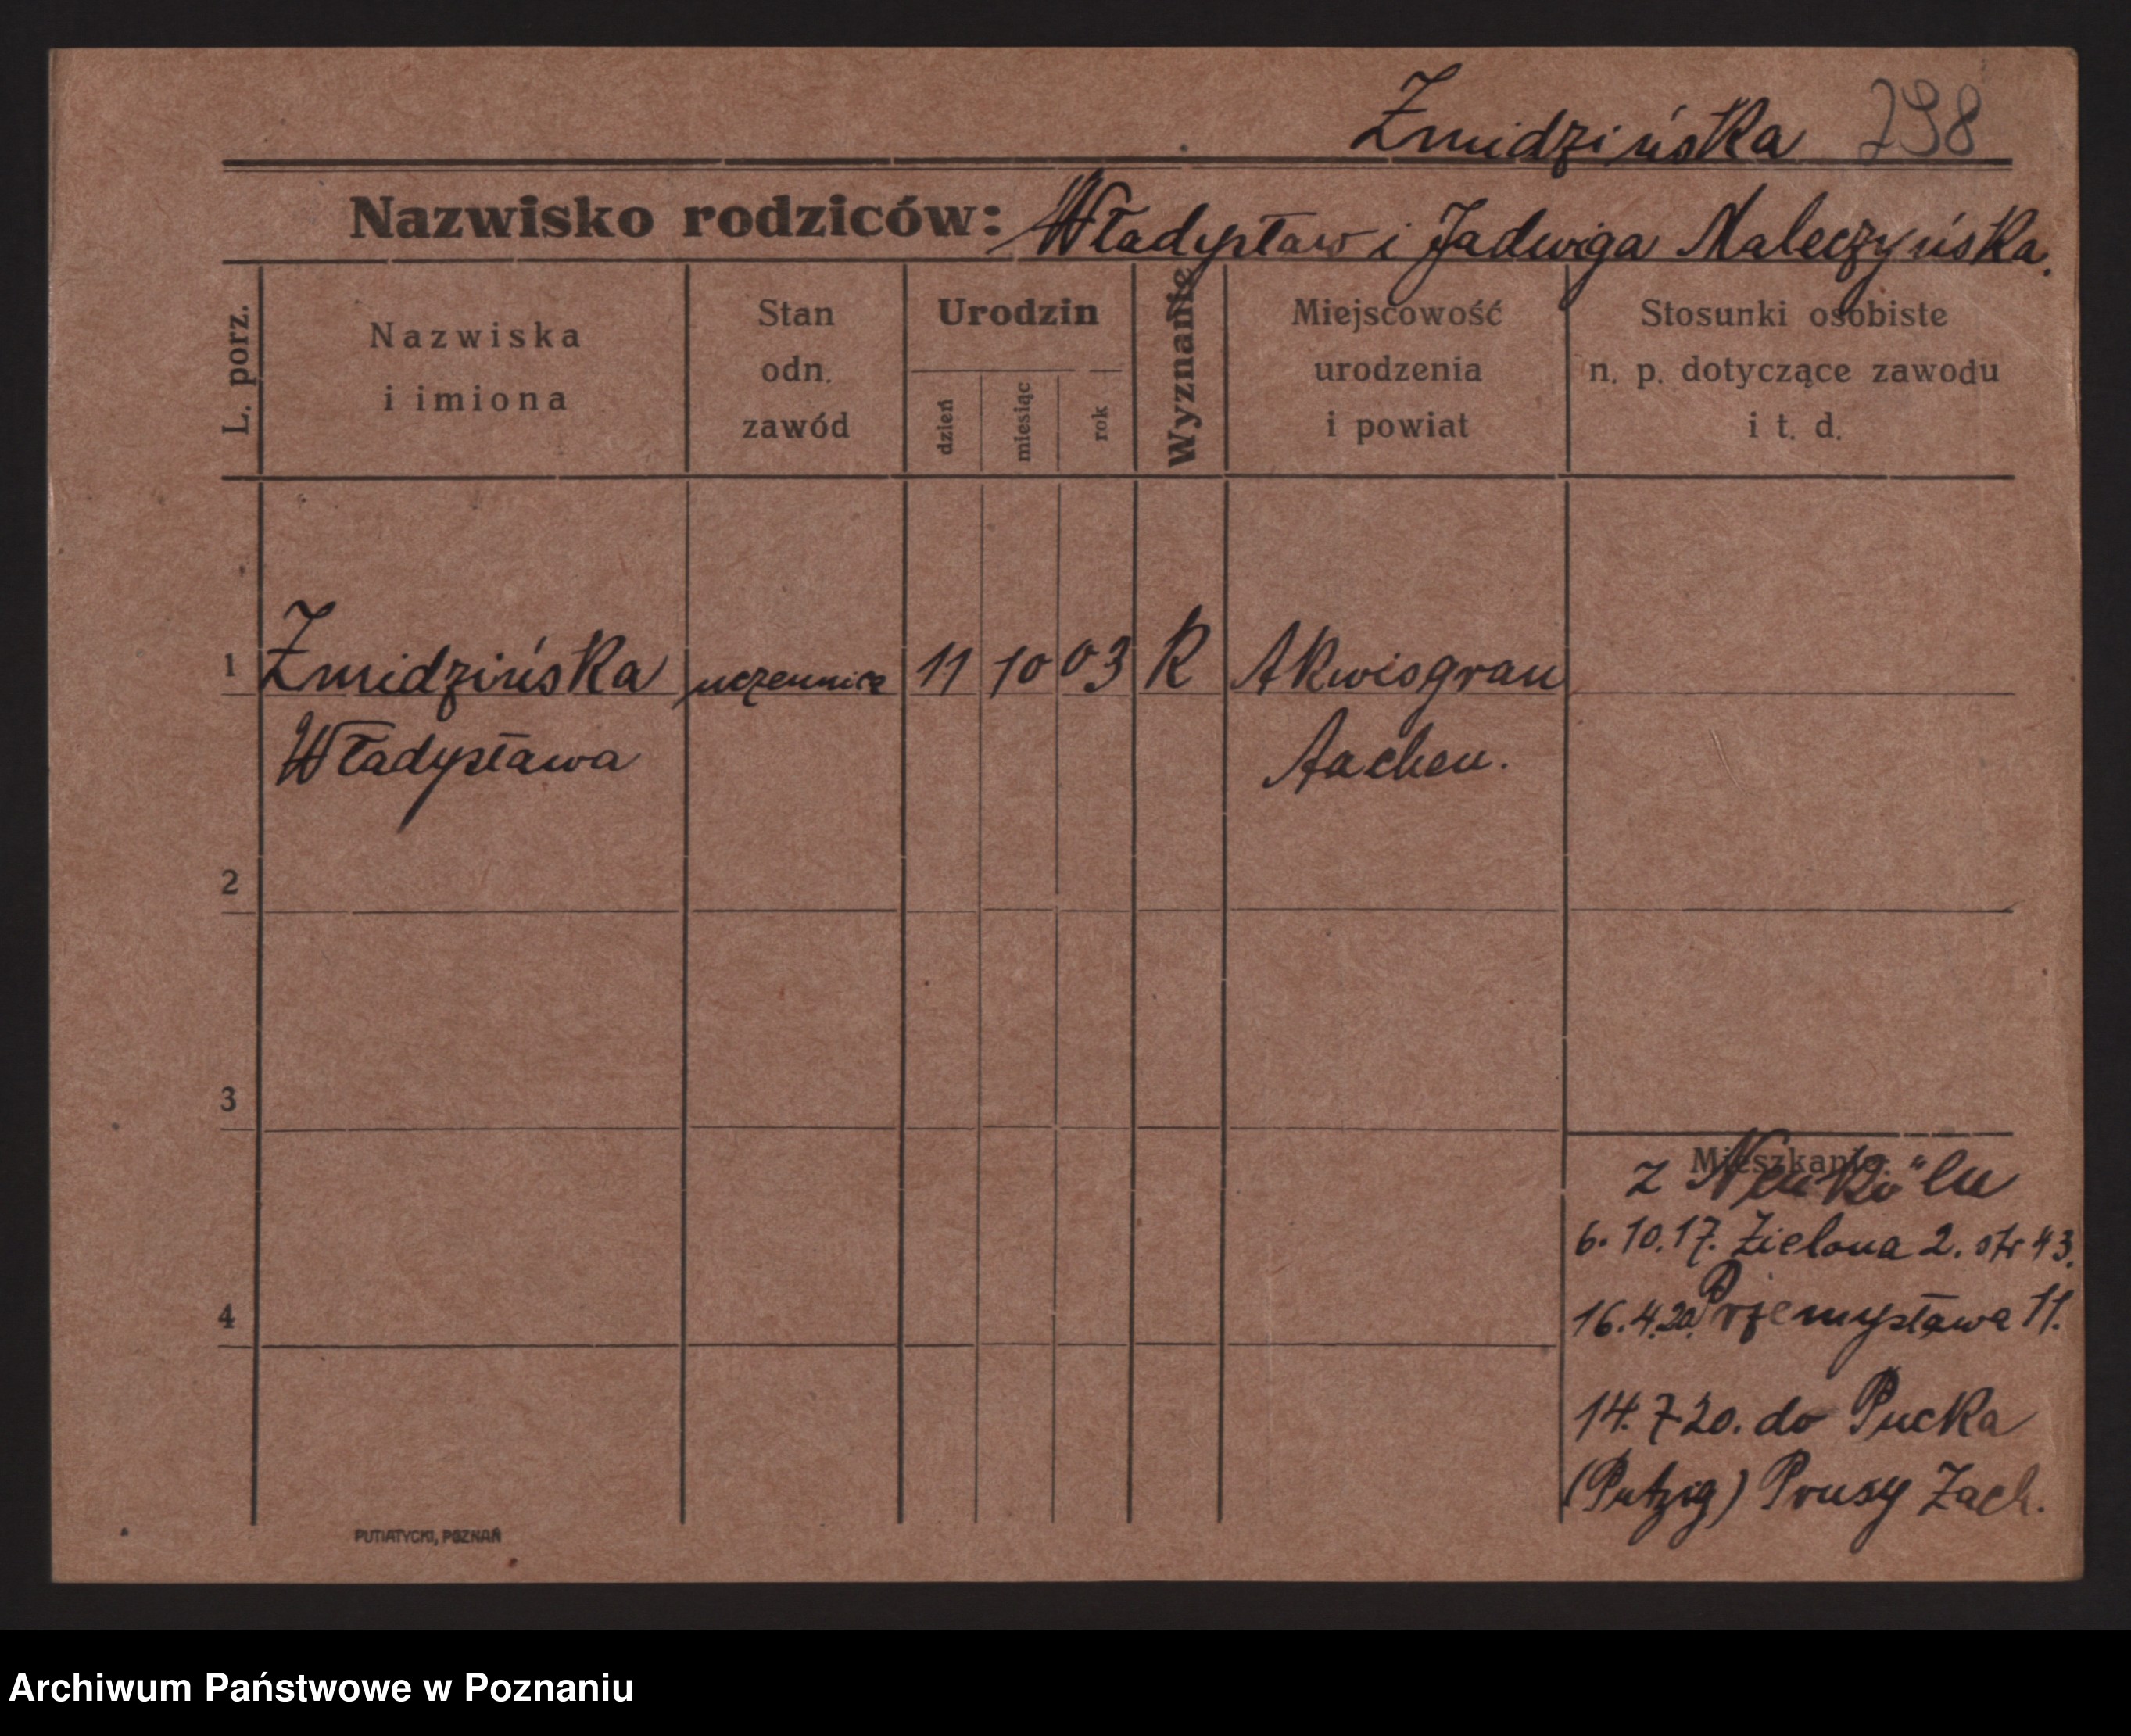 Zmidzińska 798
Nazwisko rodziców: Władysław i Jadwiga Maleczyńska.
L. porz.
Nazwiska
i imiona
Stan
odn.
zawód
Urodzin
dzień
miesiąc
rok
Wyznanie
Miejscowość
urodzenia
i powiat
Stosunki osobiste
n. p. dotyczące zawodu
i t. d.
1 Zmidzińska uczennica 11 10 03 R Akwisgran
Władysława Aachen.
2
3
Mieszkanie:
z Neukölu
6. 10. 17. Zielona 2. str 43.
4
16. 4. 20. Przemysława 11.
14. 7 20. do Pucka
(Putzig) Prusy Zach.
PUTIATYCKI, POZNAŃ
Archiwum Państwowe w Poznaniu